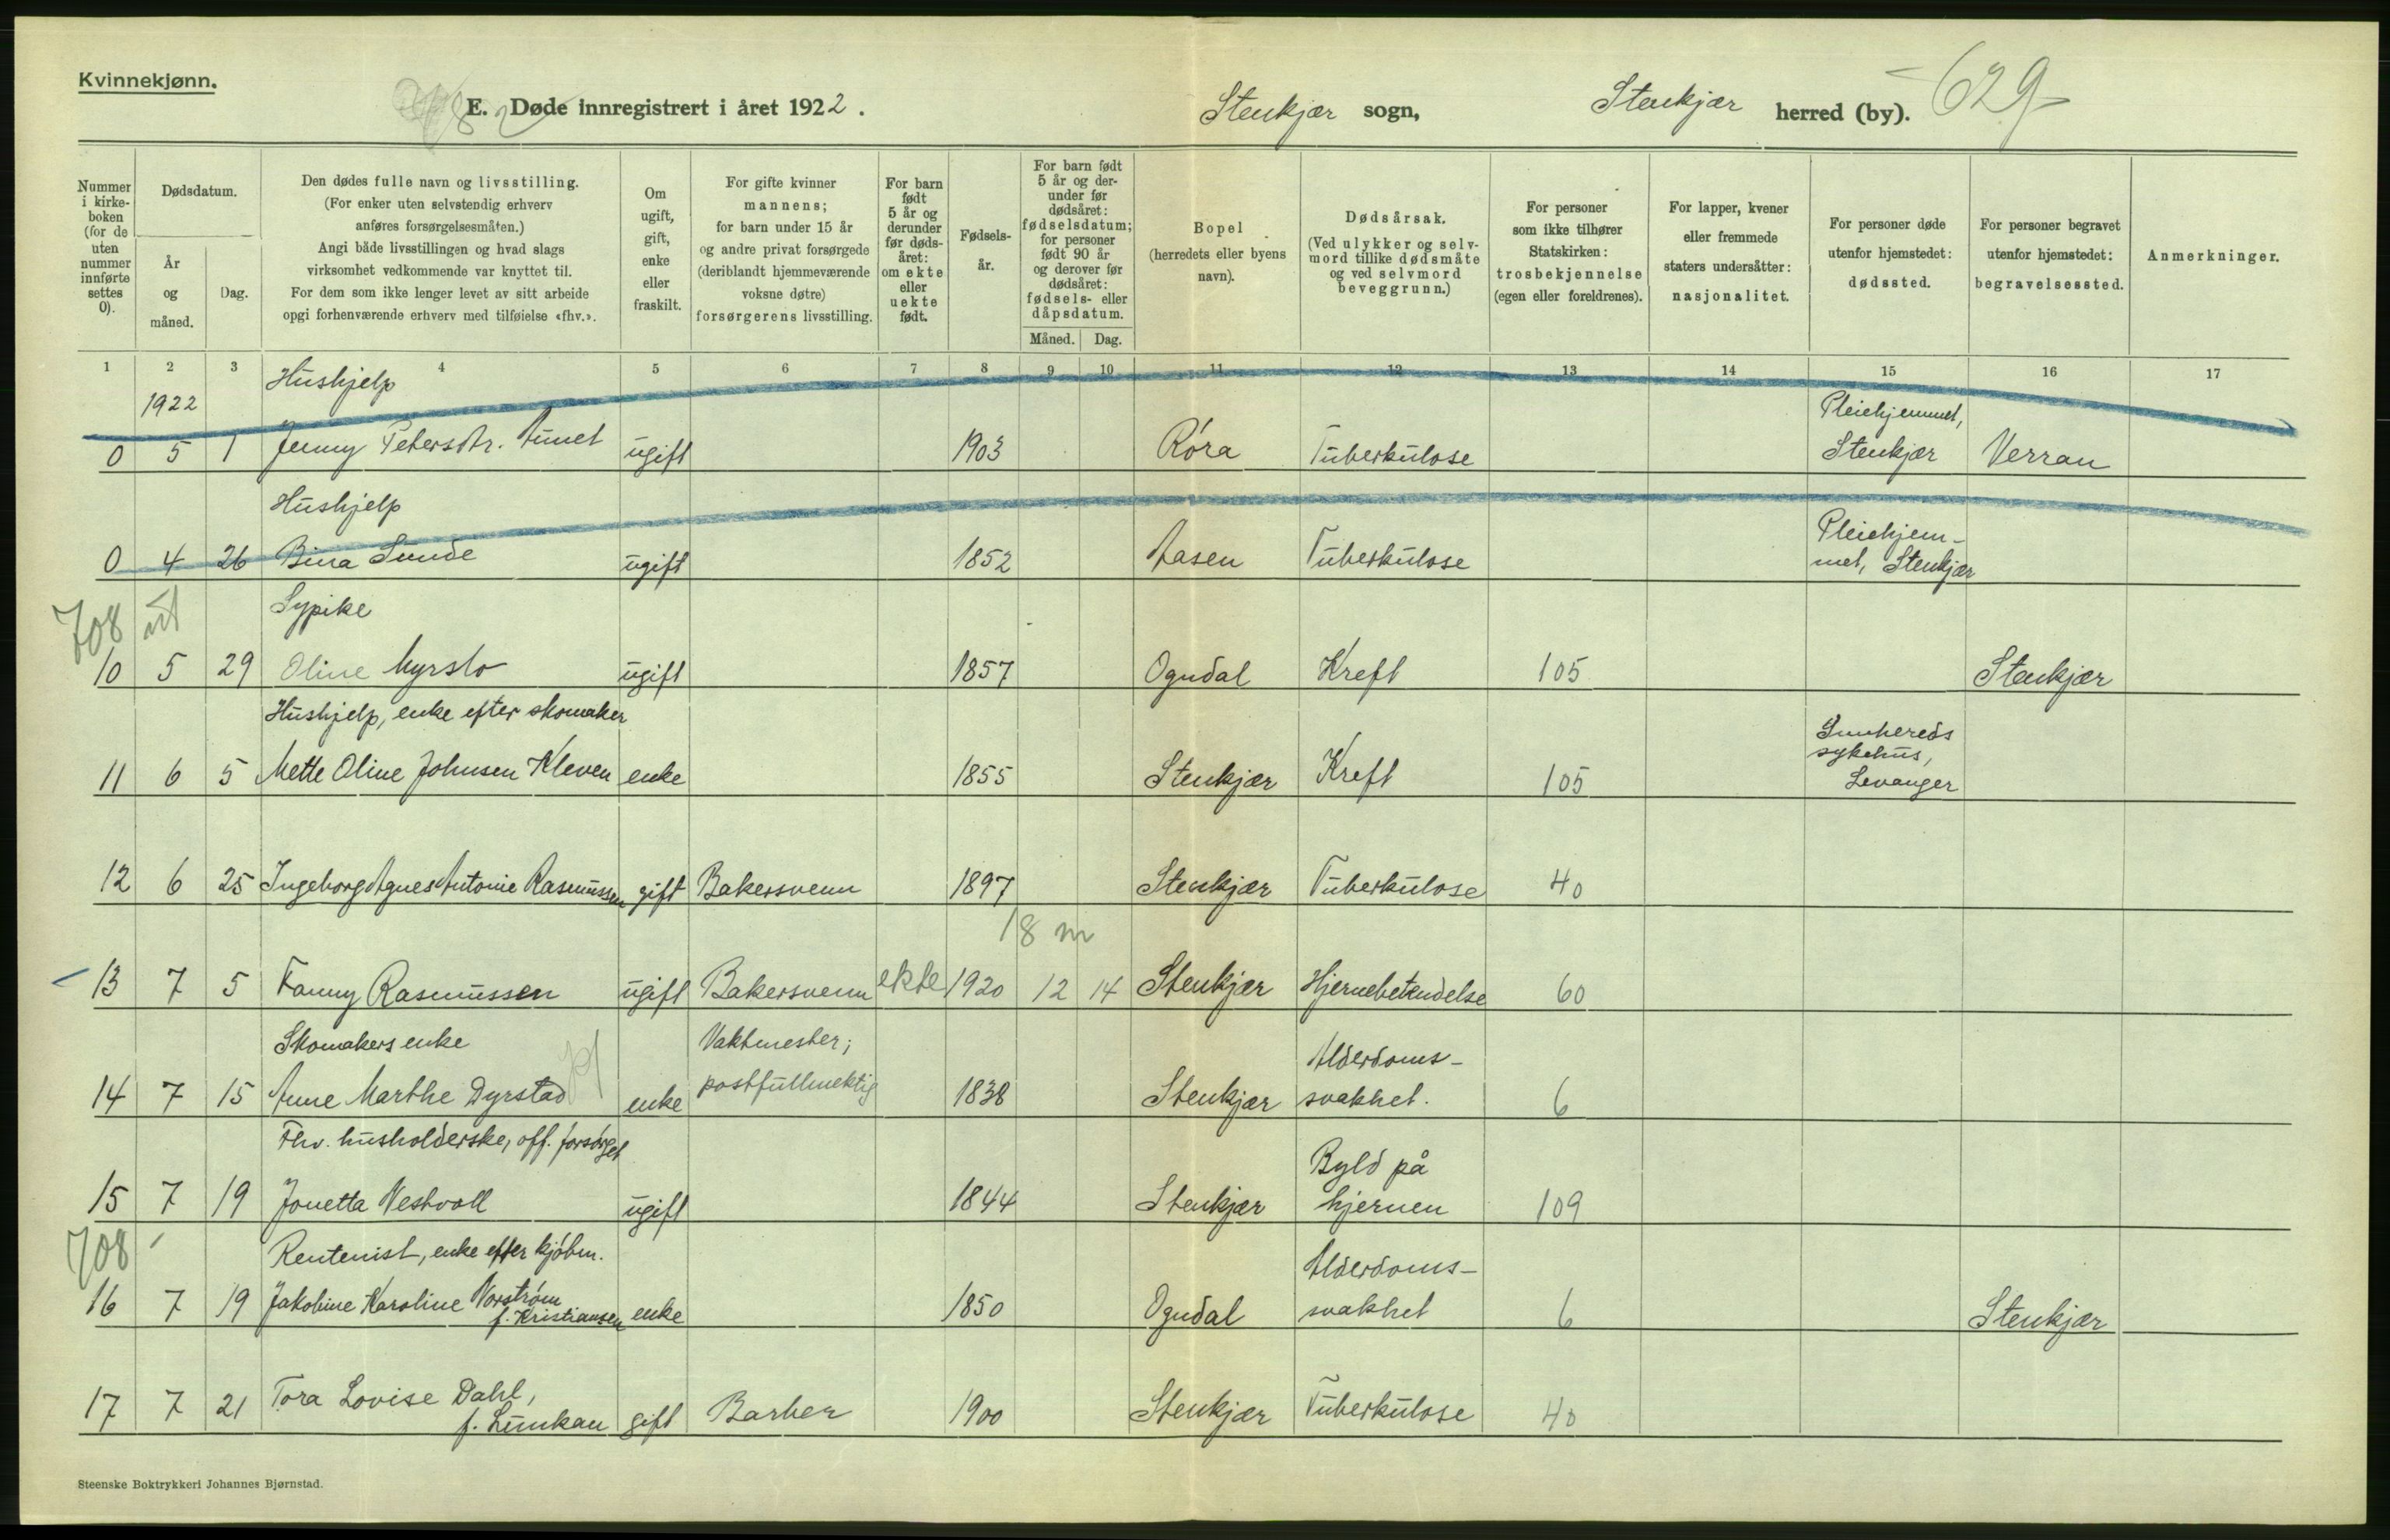 Kvinnekjønn.
E. Døde innregistrert i året 1922. Stenkjær sogn, Stenkjær herred (by). 629
Nummer i kirkeboken (for de uten nummer innførte settes 0).
Dødsdatum.
År og måned.
Dag.
Den dødes fulle navn og livsstilling.
(For enker uten selvstendig erhverv
anføres forsørgelsesmåten.)
Angi både livsstillingen og hvad slags
virksomhet vedkommende var knyttet til.
For dem som ikke lenger levet av sitt arbeide
opgi forhenværende erhverv med tilføielse «fhv.».
Om ugift, gift, enke eller fraskilt.
For gifte kvinner
mannens;
for barn under 15 år
og andre privat forsørgede
(deriblandt hjemmeværende
voksne døtre)
forsørgerens livsstilling.
For barn født 5 år og derunder før dødsåret: om ekte eller uekte født.
Fødselsår.
For barn født 5 år og derunder før dødsåret: fødselsdatum; for personer født 90 år og derover før dødsåret: fødsels- eller dåpsdatum.
Måned. Dag.
Bopel
(herredets eller byens
navn).
Dødsårsak.
(Ved ulykker og selvmord tillike dødsmåte og ved selvmord beveggrunn.)
For personer
som ikke tilhører
Statskirken:
trosbekjennelse
(egen eller foreldrenes).
For lapper, kvener
eller fremmede
staters undersåtter:
nasjonalitet.
For personer døde
utenfor hjemstedet:
dødssted.
For personer begravet
utenfor hjemstedet:
begravelsessted.
Anmerkninger.
1 2 3 4 5 6 7 8 9 10 11 12 13 14 15 16 17
1922 Hushjelp Pleiehjemmet,
0 5 1 Jenny Petersdtr. Aunet ugift 1903 Róra Tuberkulose Stenkjær Verran
Hushjelp Pleiehjem-
0 4 26 Bina Sunde ugift 1852 Aasen Tuberkulose met, Stenkjær
708 Sypike
10 5 29 Oline Myrslo ugift 1857 Ogndal Kreft 105 Stenkjær
Hushjelp, enke efter skomaker Innhereds
sykehus,
11 6 5 Mette Oline Johnsen Kleven enke 1855 Stenkjær Kreft 105 Levanger
12 6 25 Ingeborg Agnes Antonie Rasmussen gift Bakersvenn 1897 Stenkjær Tuberkulose 40
18 m
13 7 5 Fanny Rasmussen ugift Bakersvenn ekte 1920 12 14 Stenkjær Hjernebetendelse 60
Skomakers enke Vaktmester; Alderdoms-
14 7 15 Anne Marthe Dyrstad enke postfullmektig 1838 Stenkjær svakhet. 6
Fhv. husholderske, off. forsørget Byld på
15 7 19 Jonetta Vestvoll ugift 1844 Stenkjær hjernen 109
708 Rentenist, enke efter kjøbm. Alderdoms-
16 7 19 Jakobine Karoline Norstrøm enke 1850 Ogndal svakhet 6 Stenkjær
f. Kristiansen
17 7 21 Tora Lovise Dahl,
f. Lunkan gift Barber 1900 Stenkjær Tuberkulose 40
Steenske Boktrykkeri Johannes Bjørnstad.